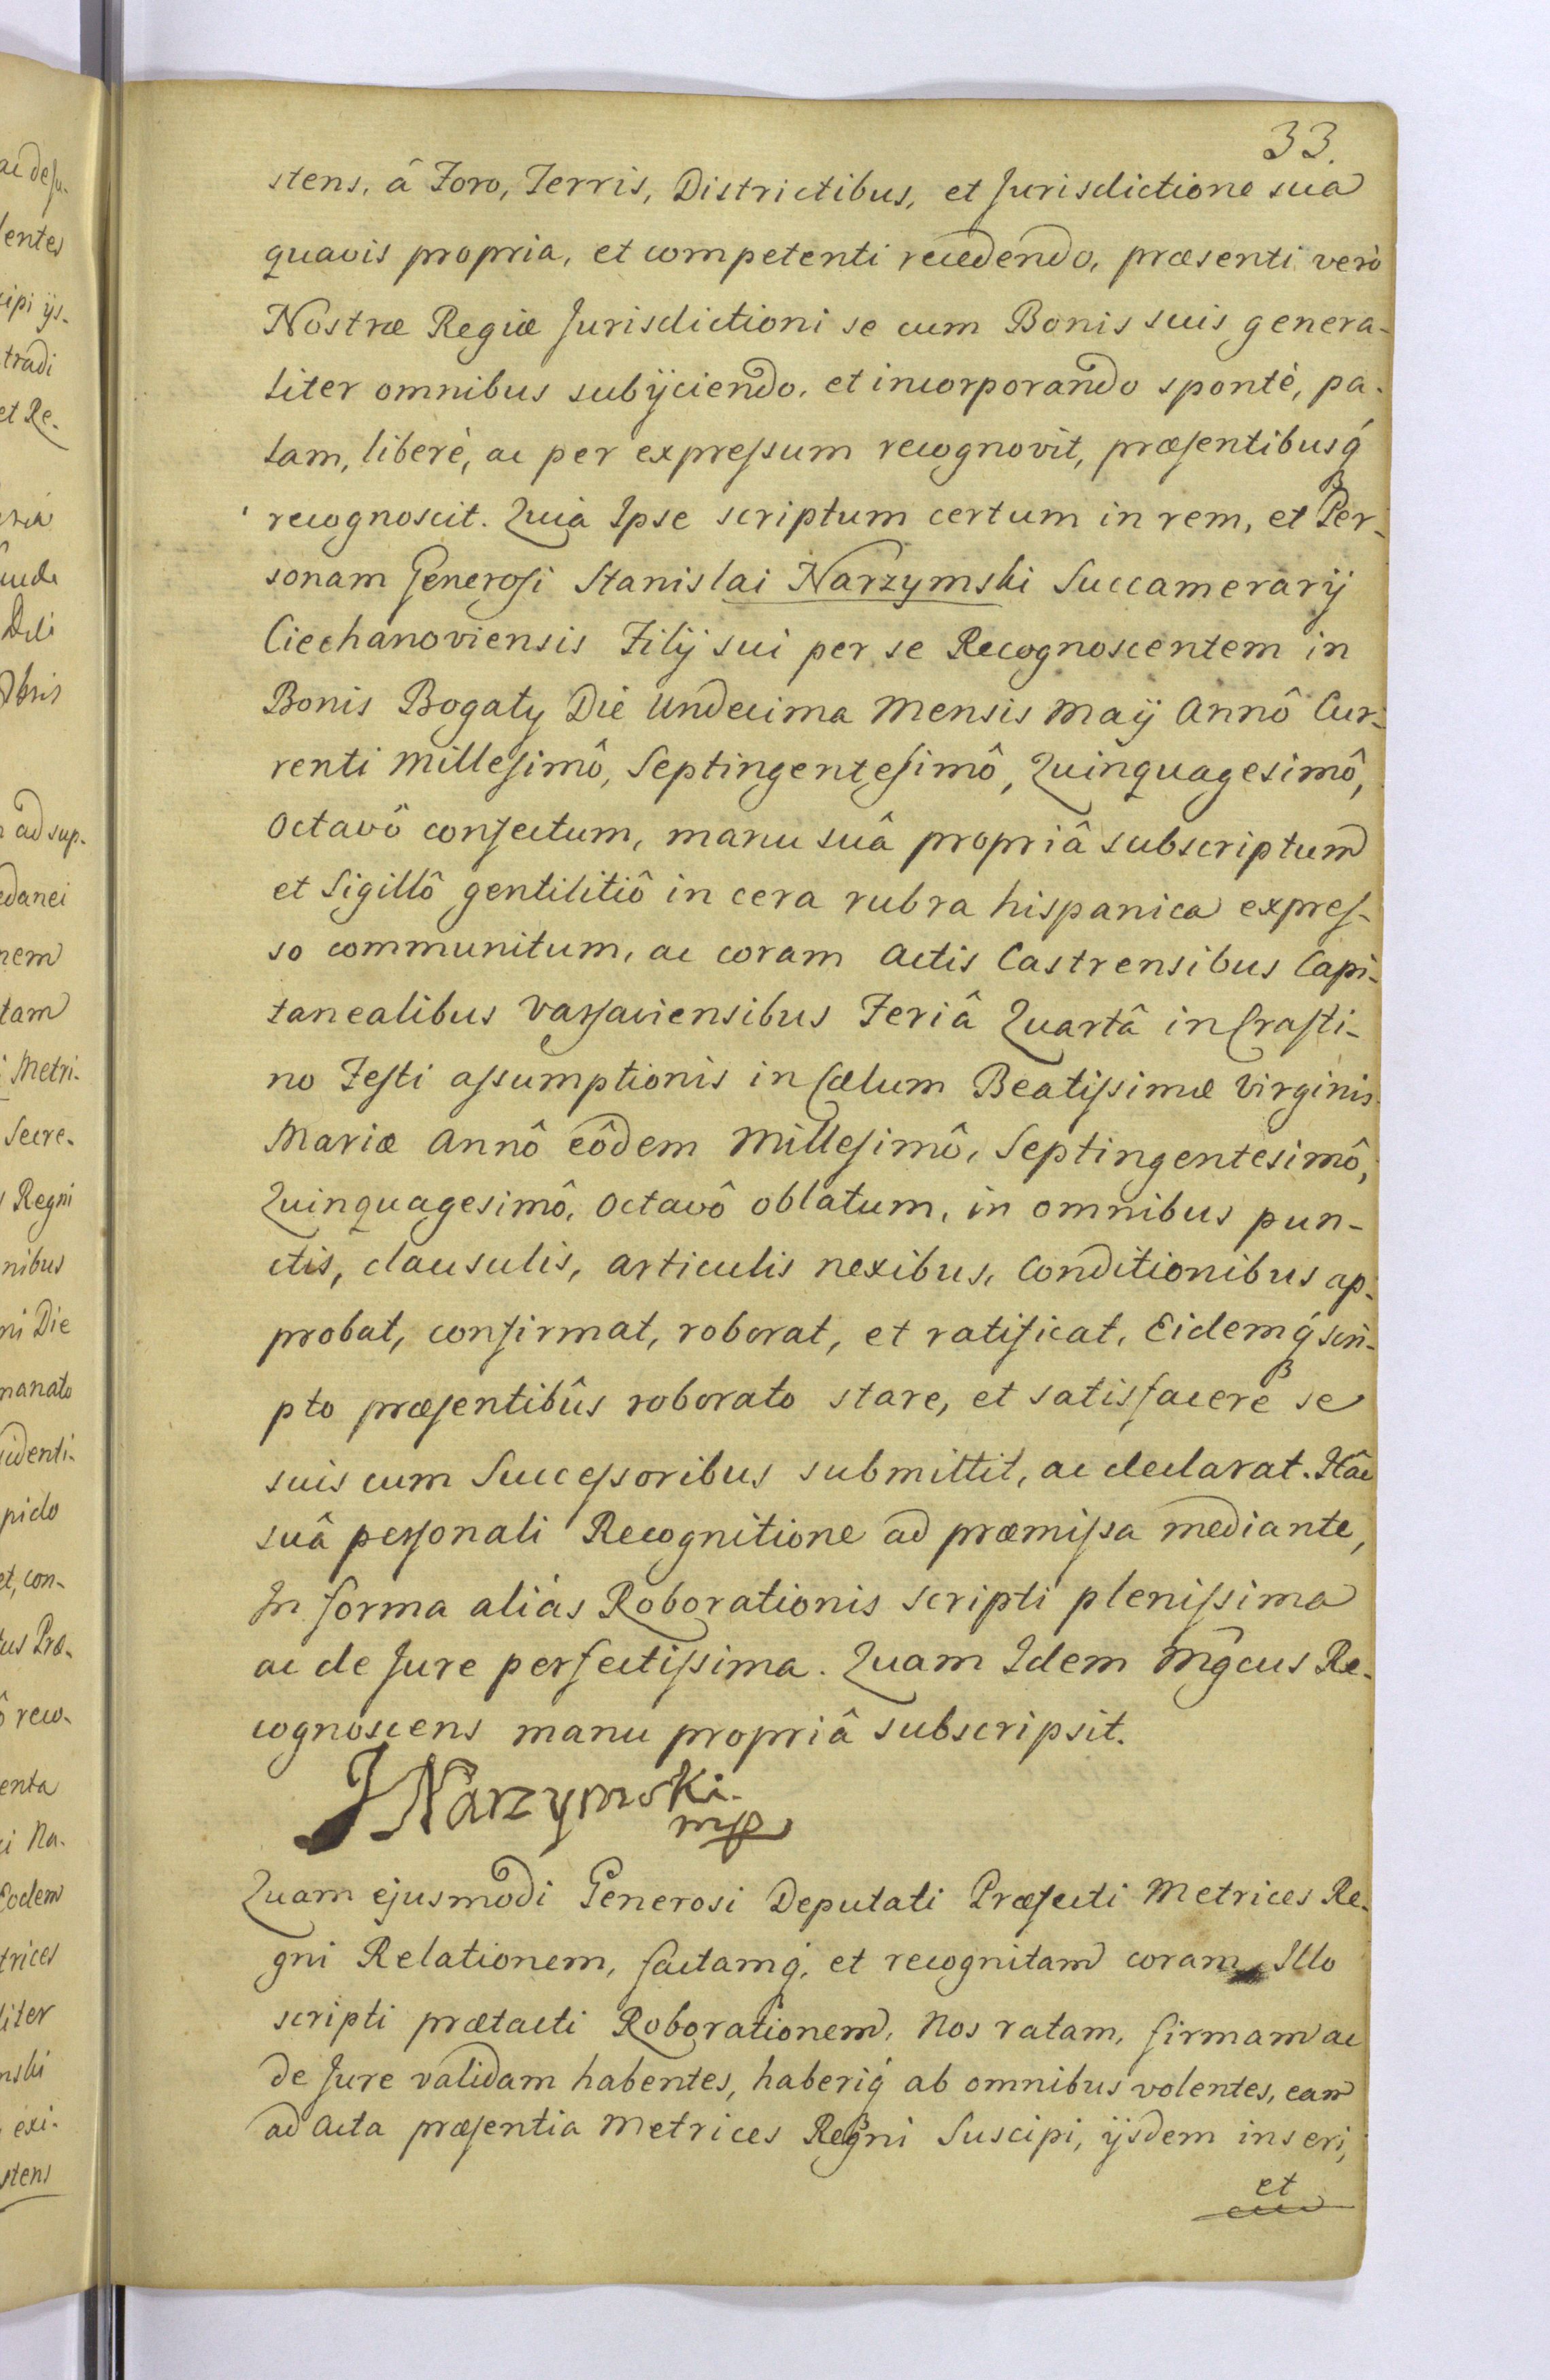 33.
stens, â Foro, Terris, Districtibus, et Jurisdictione sua
quavis propria, et competenti recedendo, præsenti verò
Nostræ Regiæ Jurisdictioni se cum Bonis suis genera-
liter omnibus subÿciendo, et incorporando spontè, pa-
lam, liberè, ac per expressum recognovit, præsentibusq́
recognoscit. Quia Ipse scriptum certum in rem, et Per-
sonam Generosi Stanislai Narzymski Succamerarÿ
Ciechanoviensis Filÿ sui per se Recognoscentem in
Bonis Bogaty Die Undecima Mensis Maÿ Annô Cur-
renti Millesimô, Septingentesimô, Quinquagesimô,
Octavô confectum, manu suâ propriâ subscriptum
et Sigillô gentilitiô in cera rubra hispanica expres-
so communitum, ac coram Actis Castrensibus Capi-
tanealibus Varsaviensibus Feriâ Quartâ in Crasti-
no Festi assumptionis in Cælum Beatissimæ Virginis
Mariæ Annô eôdem Millesimô, Septingentesimô,
Quinquagesimô, Octavô oblatum, in omnibus pun-
ctis, clausulis, articulis nexibus, Conditionibus ap-
probat, confirmat, roborat, et ratificat, Eidemq́ scri-
pto præsentibûs roborato stare, et satisfacere se
suis cum Successoribus submittit, ac declarat. Hâc
suâ personali Recognitione ad præmissa mediante,
In forma aliàs Roborationis scripti plenissima
ac de Jure perfectissima. Quam Idem Mgcus Re-
cognoscens manu propriâ subscripsit.
J Narzymski
mp
Quam ejusmodi Generosi Deputati Præfecti Metrices Re-
gni Relationem, factamq́, et recognitam coram Illo
scripti prætacti Roborationem, Nos ratam, firmam ac
de Jure validam habentes, haberiq́ ab omnibus volentes, eam
ad Acta præsentia Metrices Regni Suscipi, ÿsdem inseri,
et